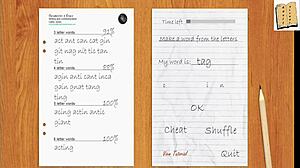 3 letter words 91%
act ant can cat gin
git nag nit tic tan
tin
4 letter words 88%
agin anti cant inca
gain gnat tang
ting
5 letter words 100%
acing actin antic
giant
6 letter words 100%
acting
Time left
Make a word from the letters
My word is: tag
c i i n
OK
Cheat Shuffle
View Tutorial Quit